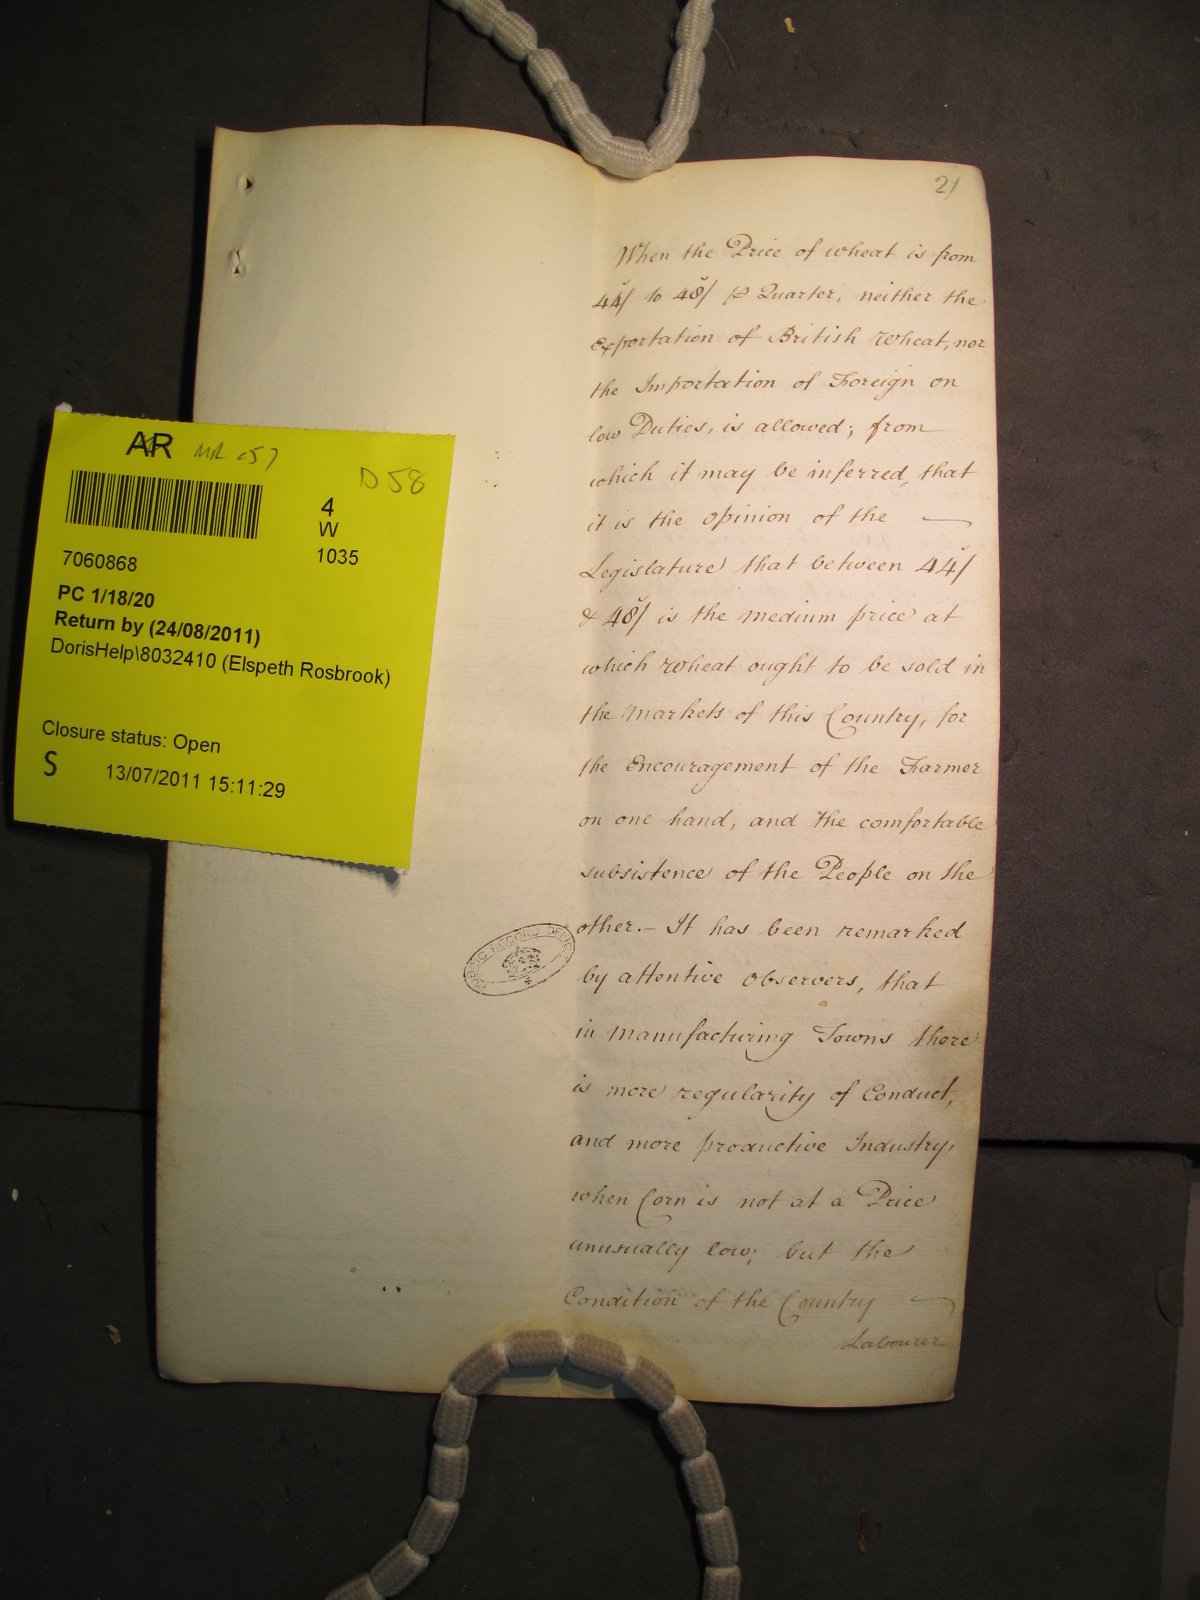 21
When the Price of wheat is from
44/ to 48/ ⅌ Quarter, neither the
exportation of British wheat, nor
the Importation of Foreign on
low Duties, is allowed; from
which it may be inferred, that
it is the opinion of the —
Legislature that between 44/
& 48/ is the medium price at
which wheat ought to be sold in
the markets of this Country, for
the Encouragement of the Farmer
on one hand, and the comfortable
subsistence of the People on the
other.— It has been remarked
by attentive observers, that
in manufacturing Towns there
is more regularity of Conduct,
and more productive Industry,
when Corn is not at a Price
unusually low; but the
Condition of the Country —
Labourer
AR MR 57
D 58
4
W
1035
7060868
PC 1/18/20
Return by (24/08/2011)
DorisHelp\8032410 (Elspeth Rosbrook)
Closure status: Open
S 13/07/2011 15:11:29
PUBLIC RECORD OFFICE